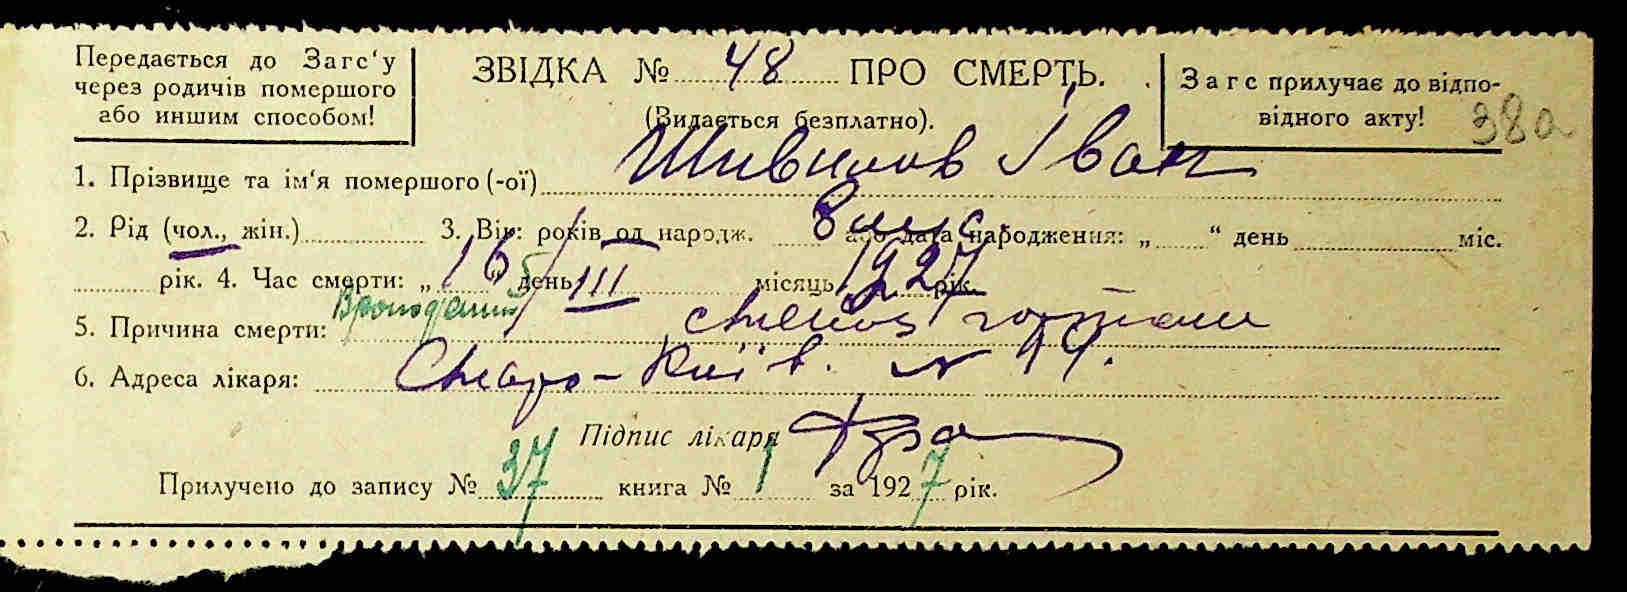 Передається до Загс'у
через родичів помершого
або иншим способом!
ЗВІДКА № 48 ПРО СМЕРТЬ.
(Видається безплатно).
Загс прилучає до відпо-
відного акту!
38а
1. Прізвище та ім'я помершого (-ої) Іван
2. Рід (чол., жін.) 3. Вік: років од народж. 8 або дата народження: „ “ день міс.
рік. 4. Час смерти: „ 16 “ день III місяць 1927 рік.
5. Причина смерти: стеноз гортани
6. Адреса лікаря: Старо-Київ. № 19.
Підпис лікаря
Прилучено до запису № 37 книга № 1 за 1927 рік.